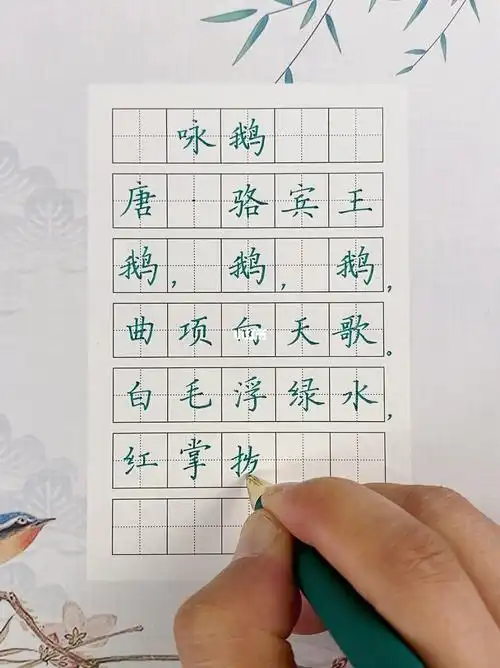 咏鹅
唐·骆宾王
鹅，鹅，鹅，
曲项向天歌。
白毛浮绿水，
红掌